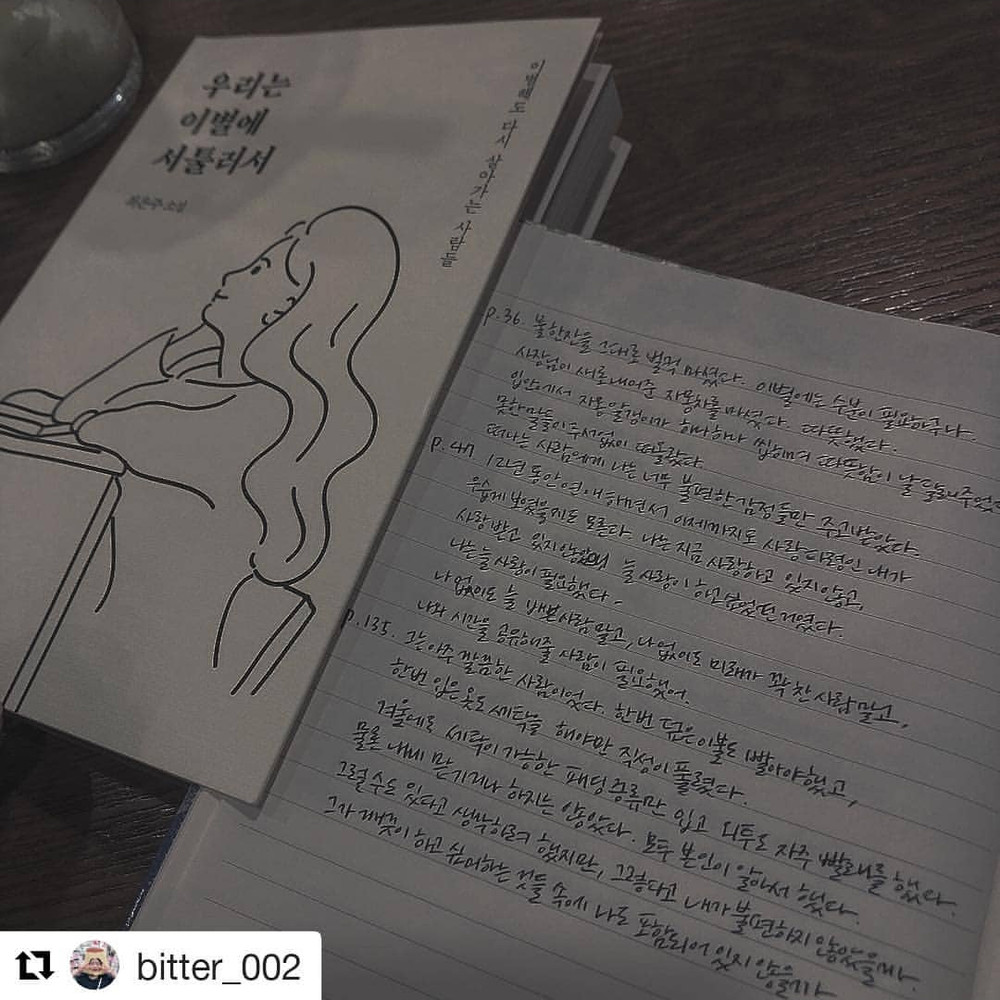 우리는
이별에
서툴러서
최은주 소설
이별해도 다시 살아가는 사람들
p.36. 물 한잔을 그대로 벌컥 마셨다. 이별에는 수분이 필요하구나.
사장님이 새로 내어준 자몽차를 마셨다. 따뜻했다.
입안에서 자몽 알갱이가 하나하나 씹히며 따뜻함이 날 달래주었
못한 말들이 두서없이 떠올랐다.
떠나는 사람에게 나는 너무 불편한 감정들만 주고받았다.
p.47 12년 동안 연애하면서 이제까지도 사랑타령인 내가
우습게 보였을지도 모른다. 나는 지금 사랑하고 있지않고,
사랑받고 있지않았 늘 사랑이 하고싶었던 거였다.
나는 늘 사랑이 필요했다.
나 없이도 늘 바쁜사람 말고, 나 없이도 미래가 꽉 찬 사람 말고,
나와 시간을 공유해줄 사람이 필요했어.
p.135. 그는 아주 깔끔한 사람이었다. 한번 덮은 이불도 빨아야했고,
한번 입은 옷도 세탁을 해야만 직성이 풀렸다.
겨울에도 세탁이 가능한 패딩 종류만 입고 외투도 자주 빨래를 했다.
물론 내게 맡기거나 하지는 않았다. 모두 본인이 알아서 했다.
그럴 수도 있다고 생각하려 했지만, 그렇다고 내가 불편하지 않았을까.
그가 깨끗이 하고 싶어하는 것들 속에 나도 포함되어 있지 않을까
bitter_002